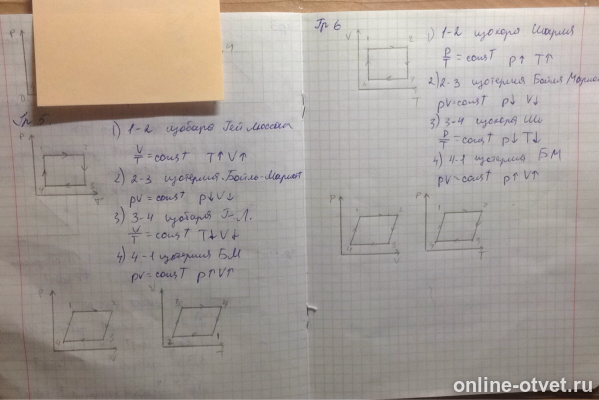 P
Гр 5
P
T
1) 1-2 изобара Гей Люссак
V/T = const T↑ V↑
2) 2-3 изотерма Бойля-Мариот
pV = const p↓ V↓
3) 3-4 изобара Г-Л.
V/T = const T↓ V↓
4) 4-1 изотерма БМ
pV = const p↑ V↑
P
1 2
T
V
2 1
Гр 6
V
T
1) 1-2 изохора Шарля
P/T = const p↑ T↑
2) 2-3 изотерма Бойля Мариот
pV = const p↓ V↓
3) 3-4 изохора Ш
P/T = const p↓ T↓
4) 4-1 изотерма БМ
pV = const p↑ V↑
P
V
P
T
online-otvet.ru